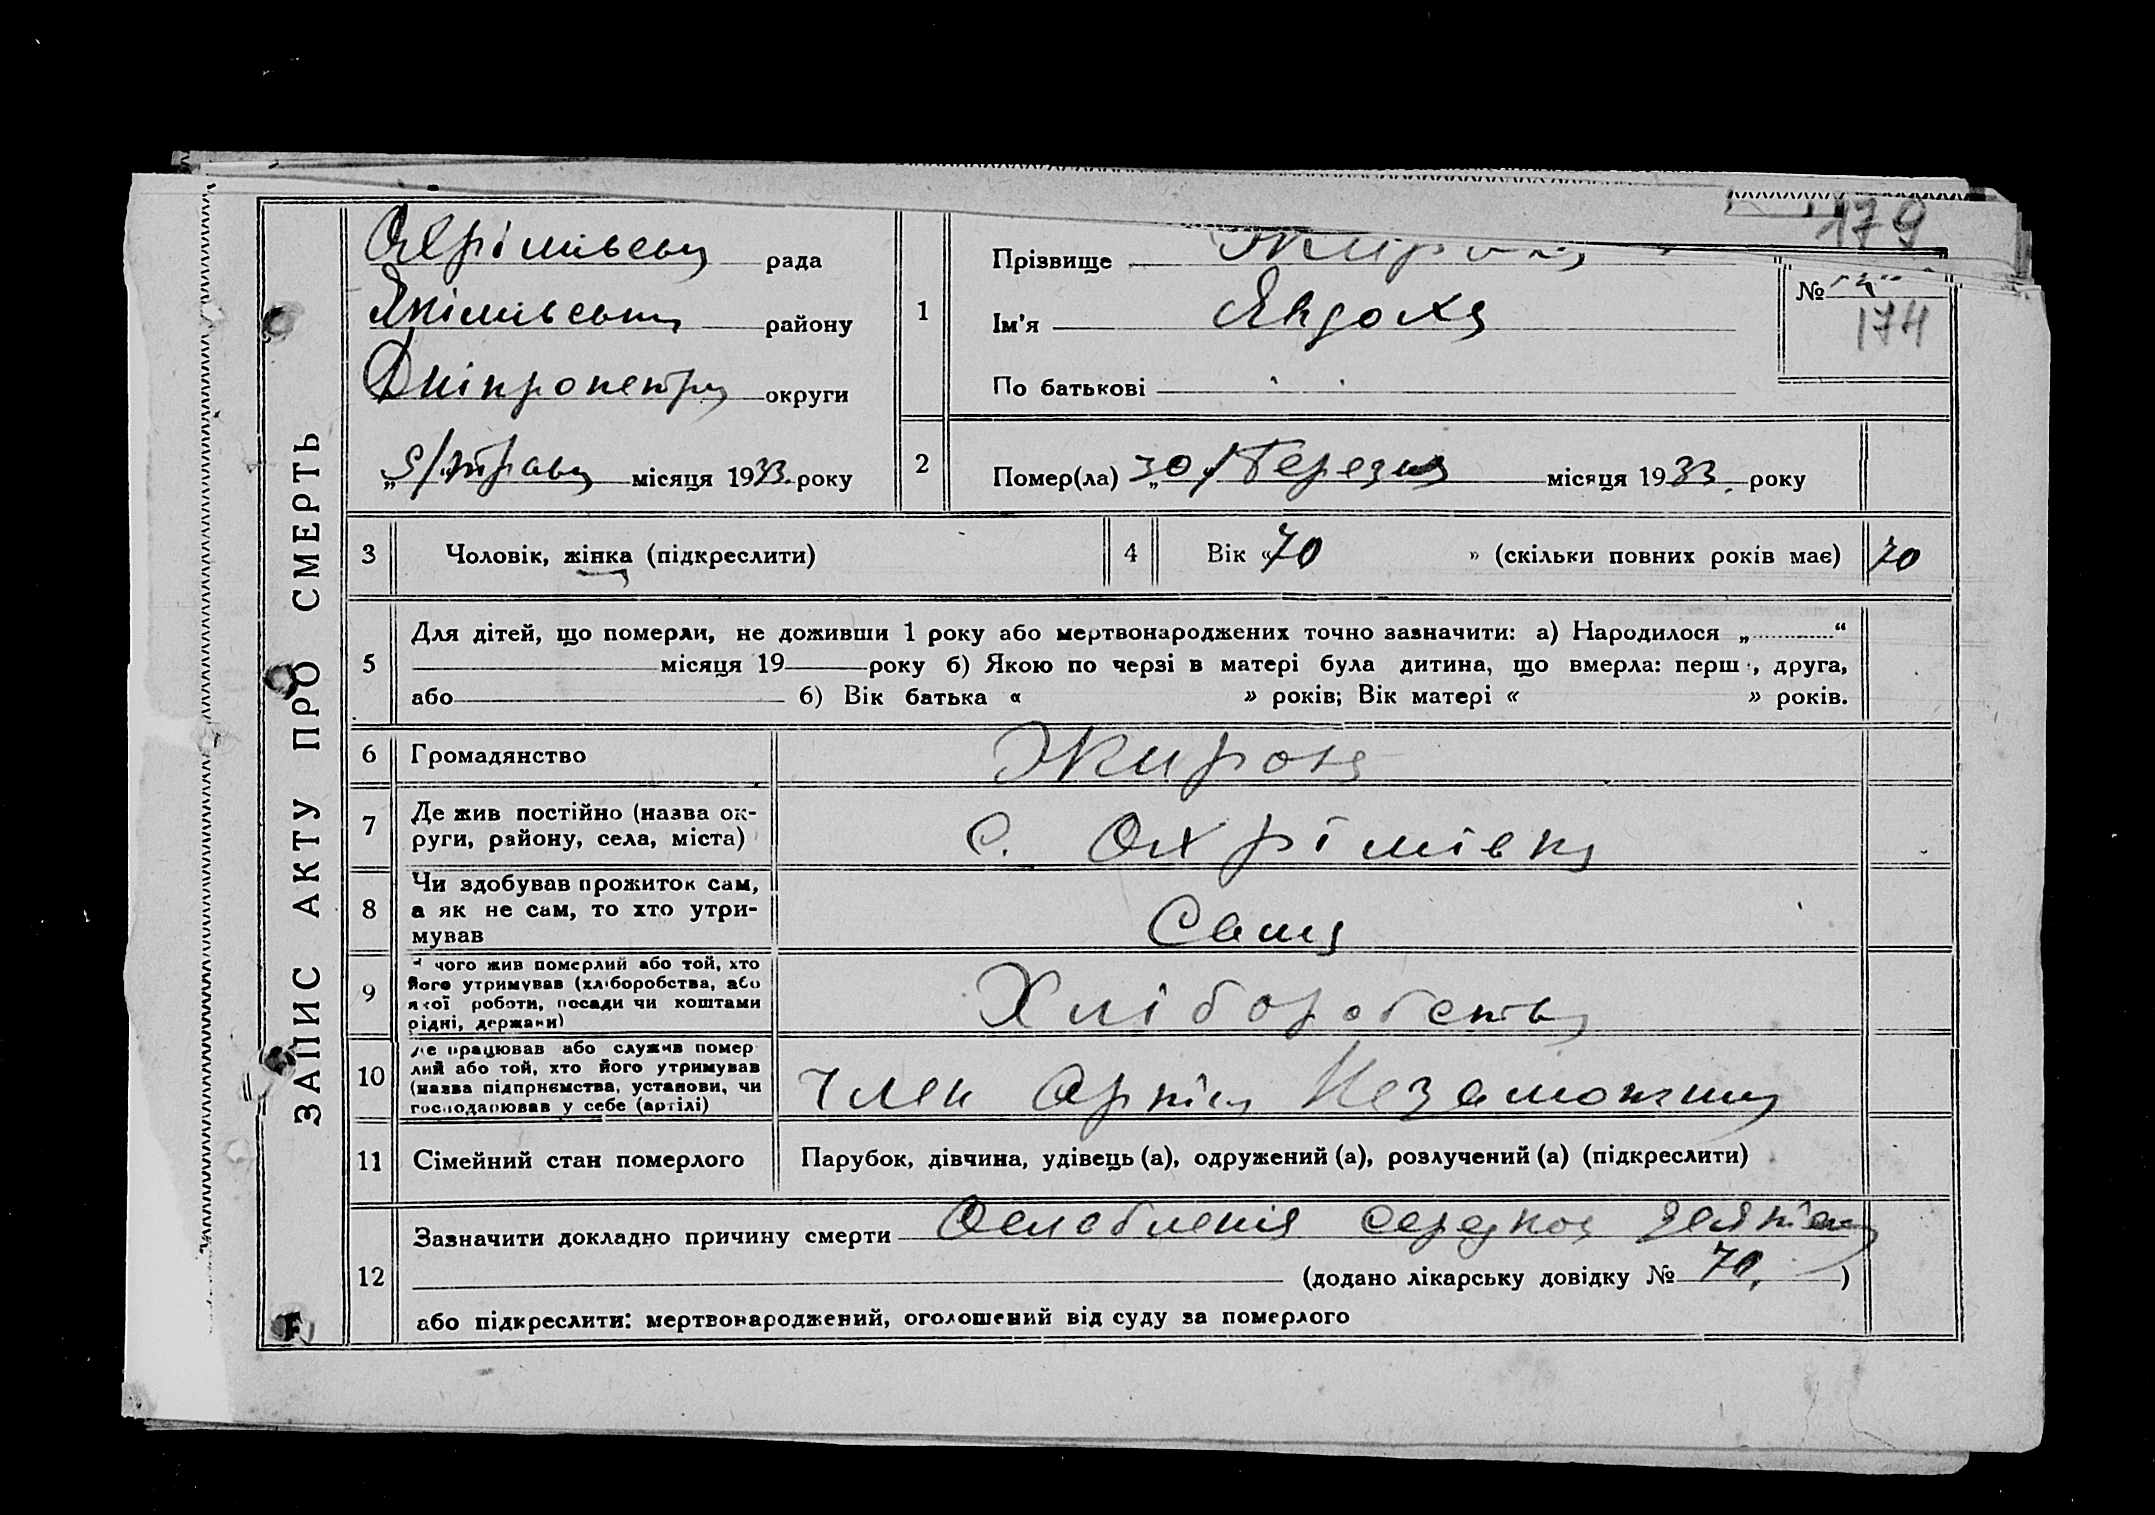 179
ЗАПИС АКТУ ПРО СМЕРТЬ
Охрімівськ рада
Якімівськ району
Дніпропетр округи
„5/травн місяця 1933. року
1
Прізвище
Ім'я Явдоха
По батькові
№
174
2
Помер(ла) „30/Березня місяця 1933. року
3
Чоловік, жінка (підкреслити)
4
Вік «70 » (скільки повних років має) 70
5
Для дітей, що померли, не доживши 1 року або мертвонароджених точно зазначити: а) Народилося „ “
місяця 19 року б) Якою по черзі в матері була дитина, що вмерла: перш , друга,
або б) Вік батька « » років; Вік матері « » років.
6
Громадянство
7
Де жив постійно (назва ок-
руги, району, села, міста)
С. Охрімівка
8
Чи здобував прожиток сам,
а як не сам, то хто утри-
мував
Сама
9
чого жив померлий або той, хто
його утримував (хліборобства, або
якої роботи, посади чи коштами
рідні, держави)
Хліборобств
10
Де працював або служив помер
лий або той, хто його утримував
(назва підприємства, установи, чи
господарював у себе (артілі)
Член Артіл Незаможник
11
Сімейний стан померлого
Парубок, дівчина, удівець (а), одружений (а), розлучений (а) (підкреслити)
12
Зазначити докладно причину смерти Ослабленія
(додано лікарську довідку № 70. )
або підкреслити: мертвонароджений, оголошений від суду за померлого